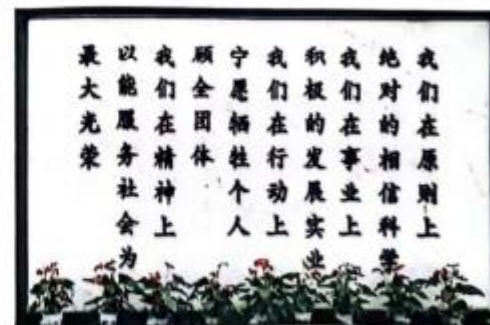 我们在原则上
绝对的相信科学
我们在事业上
积极的发展实业
我们在行动上
宁愿牺牲个人
顾全团体
我们在精神上
以能服务社会为
最大光荣